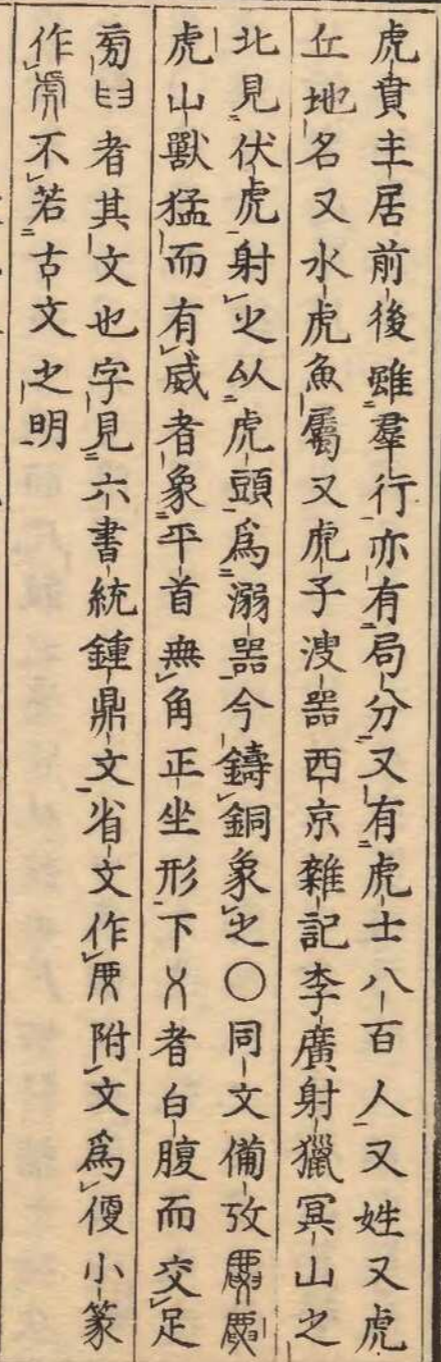 虎賁主居前後雖羣行亦有局分又有虎士八百人又姓又虎
丘地名又水虎魚屬又虎子溲器西京雜記李廣射獵冥山之
北見伏虎射之以虎頭爲溺器今鑄銅象之〇同文備攷
虎山獸猛而有威者象平首無角正坐形下乂者白腹而交足
者其文也字見六書統鍾鼎文省文作附文爲便小篆
作不若古文之明